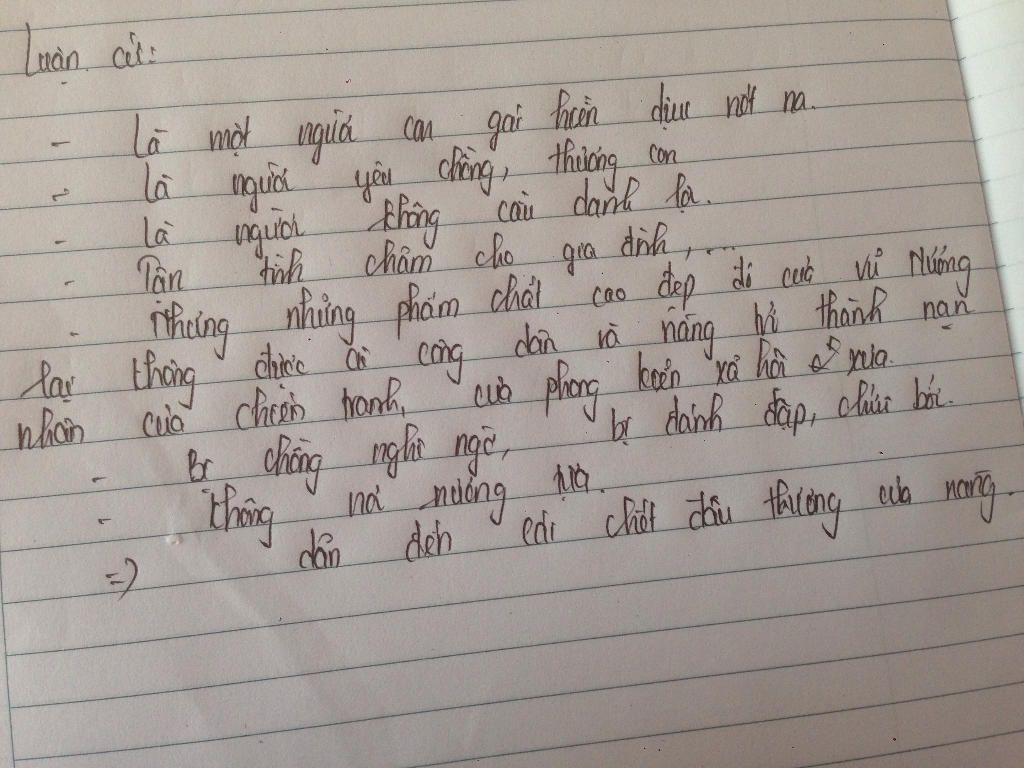 Luận cứ:
- Là một người con gái hiền dịu nết na.
- Là người yêu chồng, thương con
- Là người không cầu danh lợi.
- Tần tình chăm cho gia đình, ...
- Nhưng những phẩm chất cao đẹp đó của Vũ Nương
lại không được công dân và nàng trở thành nạn
nhân của chiến tranh, của phong kiến xã hội xưa.
- Bị chồng nghi ngờ, bị đánh đập, chửi bới.
- Không nơi nương tựa.
=> dẫn đến cái chết đầu thương của nàng.